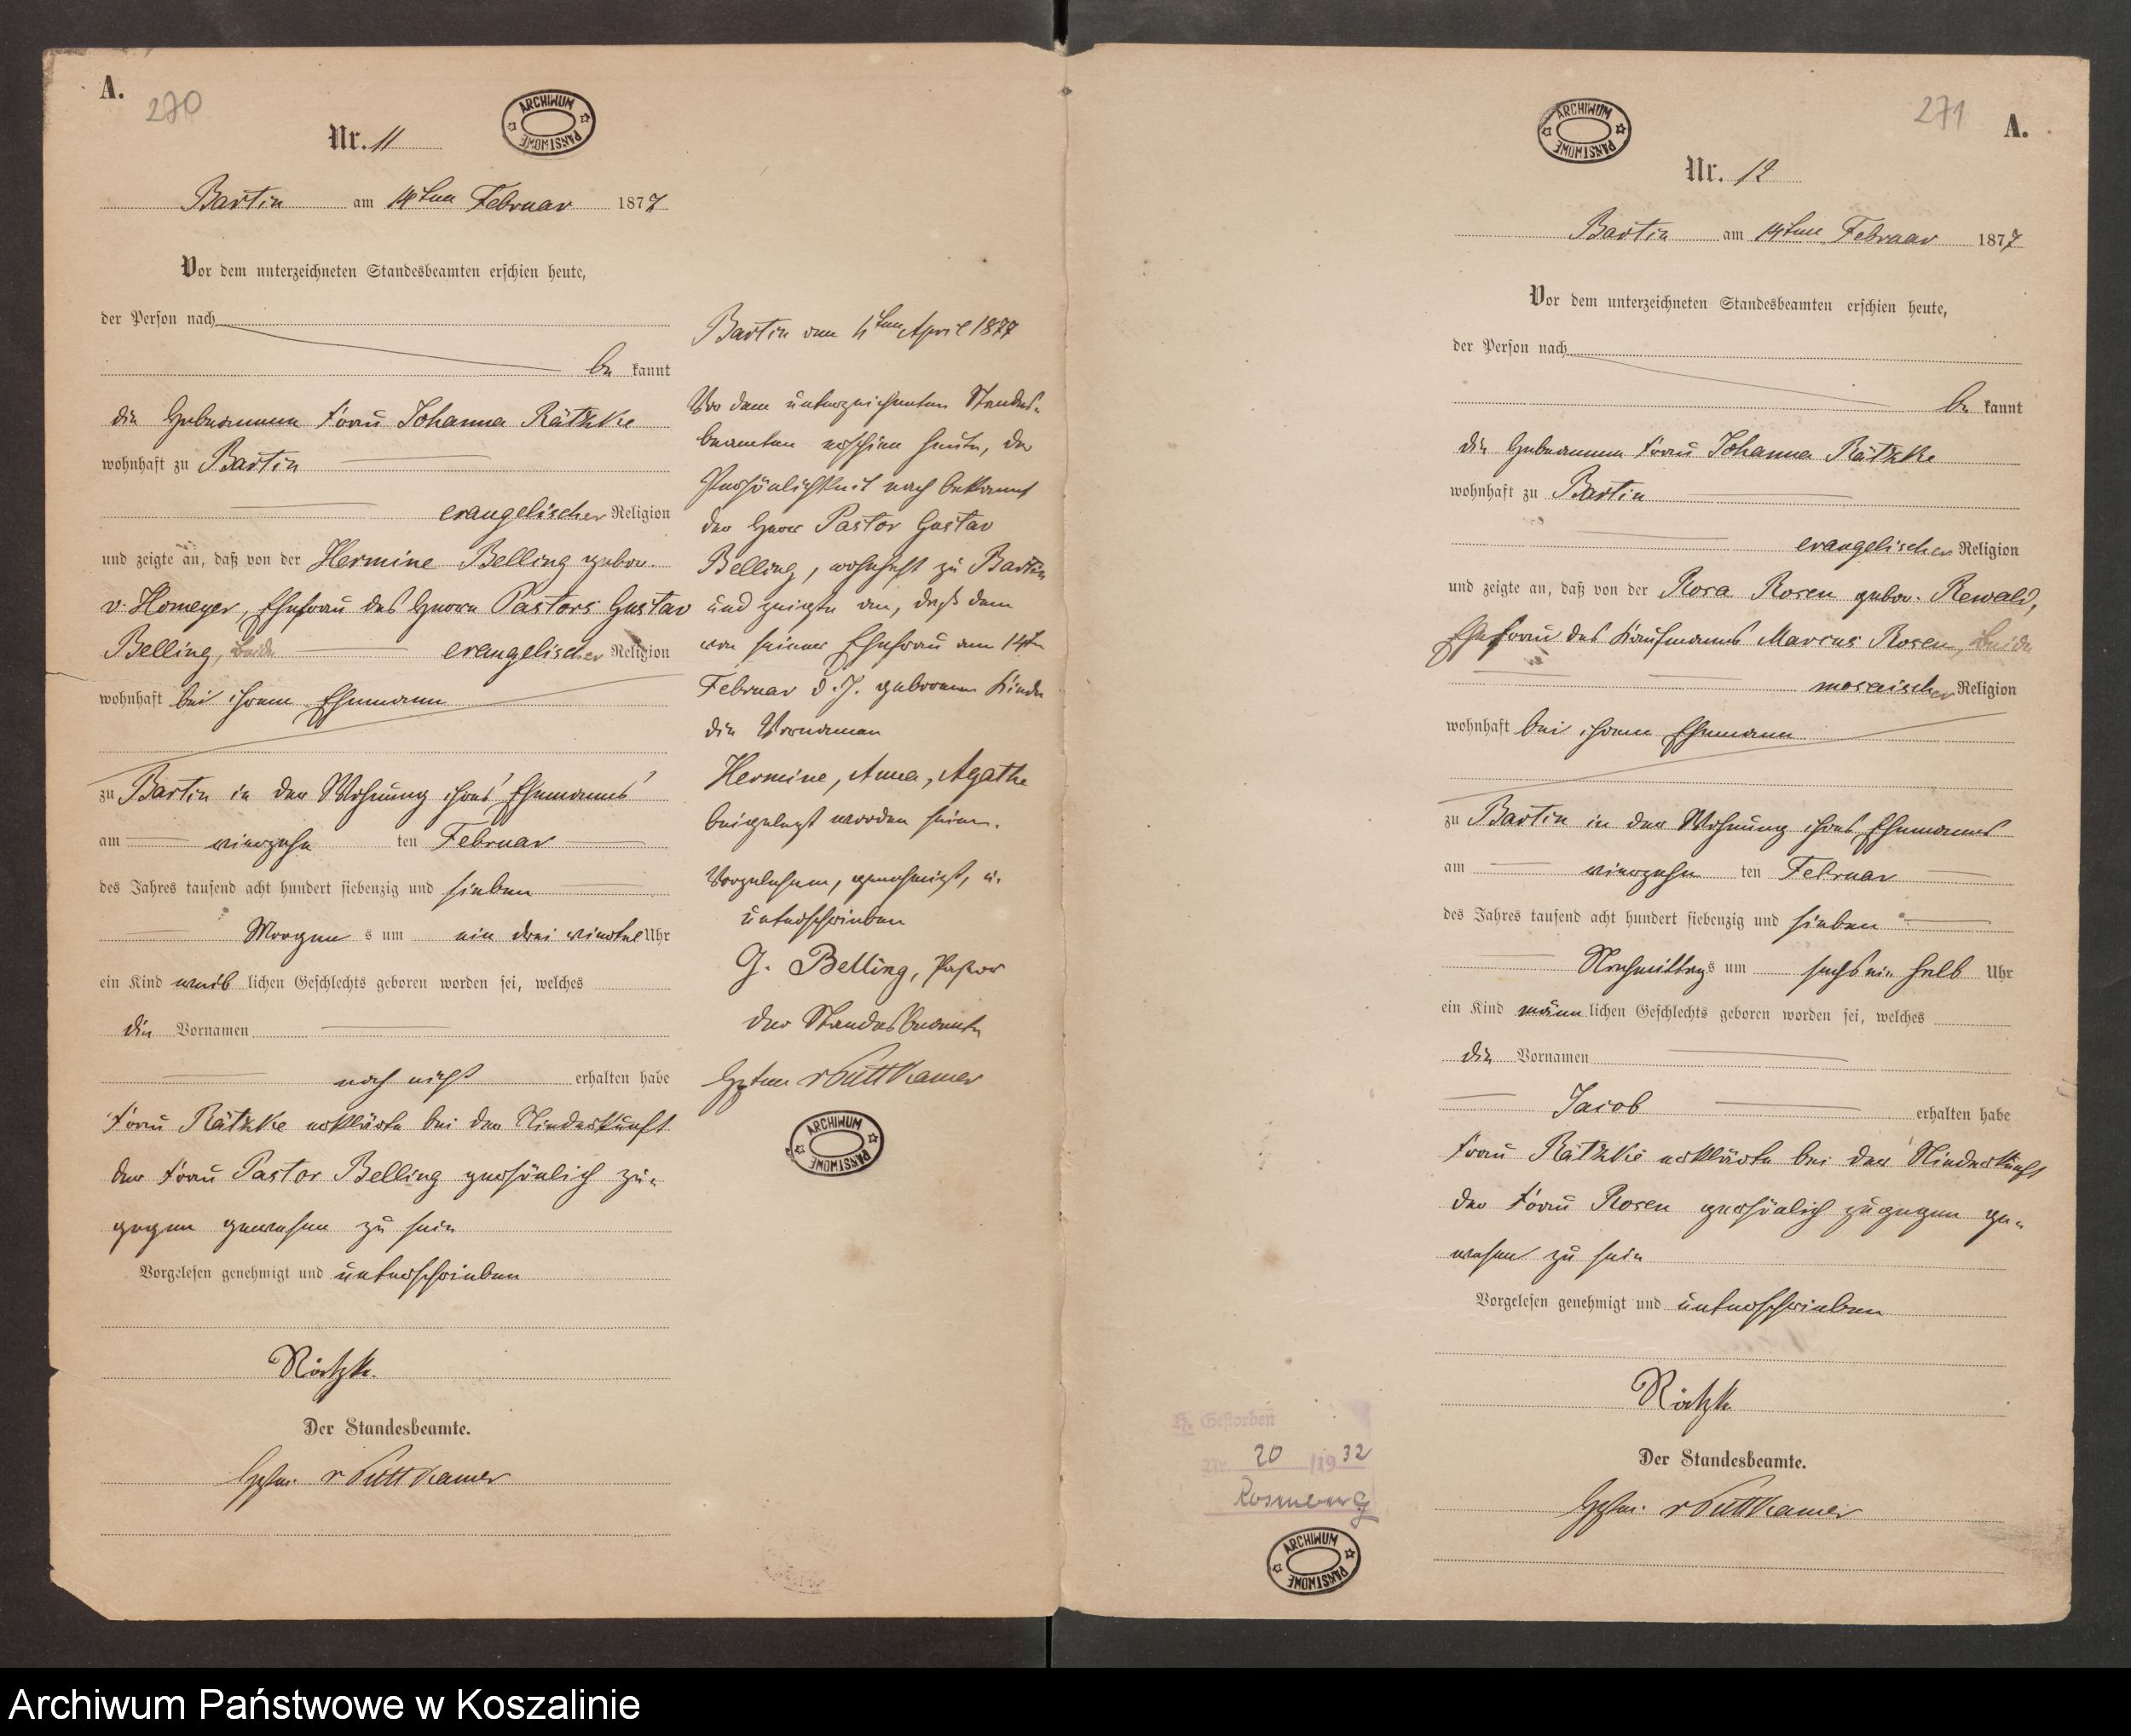 A.
270
ARCHIWUM PAŃSTWOWE
Nr. 11
Bartin am 14ten Februar 1877
Vor dem unterzeichneten Standesbeamten erschien heute,
der Person nach
be kannt
die Hebeamme Frau Johanna Rätzke
wohnhaft zu Bartin
evangelischer Religion
und zeigte an, daß von der Hermine Belling gebor.
v. Homeyer, Ehefrau des Herrn Pastors Gustav
Belling, beide evangelischer Religion
wohnhaft bei ihrem Ehemann
zu Bartin in der Wohnung ihres Ehemannes
am vierzehn ten Februar
des Jahres tausend acht hundert siebenzig und sieben
Morgen s um ein drei viertel Uhr
ein Kind weib lichen Geschlechts geboren worden sei, welches
die Vornamen
noch nicht erhalten habe
Frau Rätzke erklärte bei der Niederkunft
der Frau Pastor Belling persönlich zu-
gegen gewesen zu sein
Vorgelesen genehmigt und unterschrieben
Rätzke.
Der Standesbeamte.
Hptm. v Puttkamer
Bartin am 4ten April 1877
Vor dem unterzeichneten Standes-
beamten erschien heute, der
Persönlichkeit nach bekannt
der Herr Pastor Gustav
Belling, wohnhaft zu Bartin
und zeigte an, daß dem
von seiner Ehefrau am 14ten
Februar d. J. geborenen Kinde
die Vornamen
Hermine, Anna, Agathe
beigelegt worden seien.
Vorgelesen, genehmigt, u.
unterschrieben
G. Belling, Pastor
Der Standesbeamte
Hptm v Puttkamer
ARCHIWUM PAŃSTWOWE
271
A.
ARCHIWUM PAŃSTWOWE
Nr. 12
Bartin am 14ten Februar 1877
Vor dem unterzeichneten Standesbeamten erschien heute,
der Person nach
be kannt
die Hebeamme Frau Johanna Rätzke
wohnhaft zu Bartin
evangelischer Religion
und zeigte an, daß von der Rosa Rosen gebor. Rewald,
Ehefrau des Kaufmanns Marcus Rosen, beide
mosaischer Religion
wohnhaft bei ihrem Ehemann
zu Bartin in der Wohnung ihres Ehemannes
am vierzehn ten Februar
des Jahres tausend acht hundert siebenzig und sieben
Nachmittag s um sechs ein halb Uhr
ein Kind männ lichen Geschlechts geboren worden sei, welches
die Vornamen
Jacob erhalten habe
Frau Rätzke erklärte bei der Niederkunft
der Frau Rosen persönlich zugegen ge-
wesen zu sein
Vorgelesen genehmigt und unterschrieben
Rätzke
Der Standesbeamte.
Hptm. v Puttkamer
H. Gestorben
Nr. 20 /1932
Rosenberg
ARCHIWUM PAŃSTWOWE
Archiwum Państwowe w Koszalinie